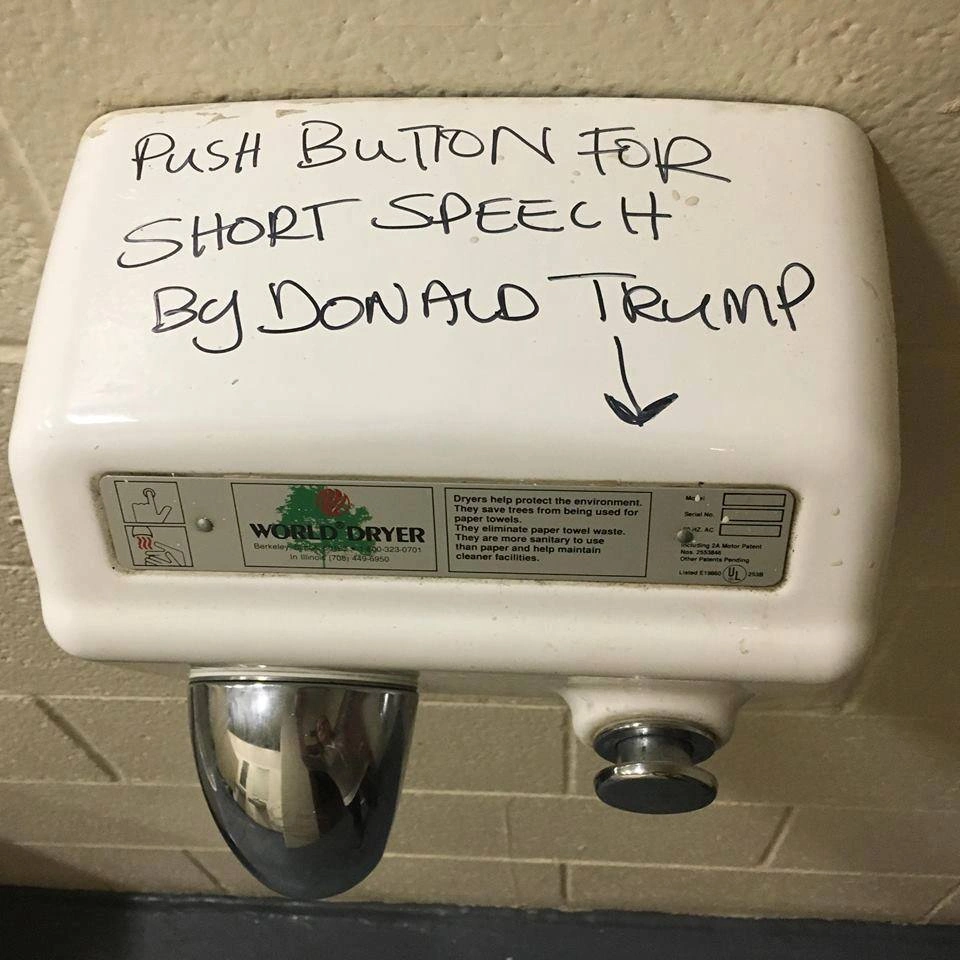 PUSH BUTTON FOR
SHORT SPEECH
BY DONALD TRUMP
WORLD® DRYER
Berkeley
In Illinois (708) 449-6950
Dryers help protect the environment.
They save trees from being used for
paper towels.
They eliminate paper towel waste.
They are more sanitary to use
than paper and help maintain
cleaner facilities.
Serial No.
HZ. AC
Including 2A Motor Patent
Nos. 2553846
Other Patents Pending
Listed E19860 UL 253B